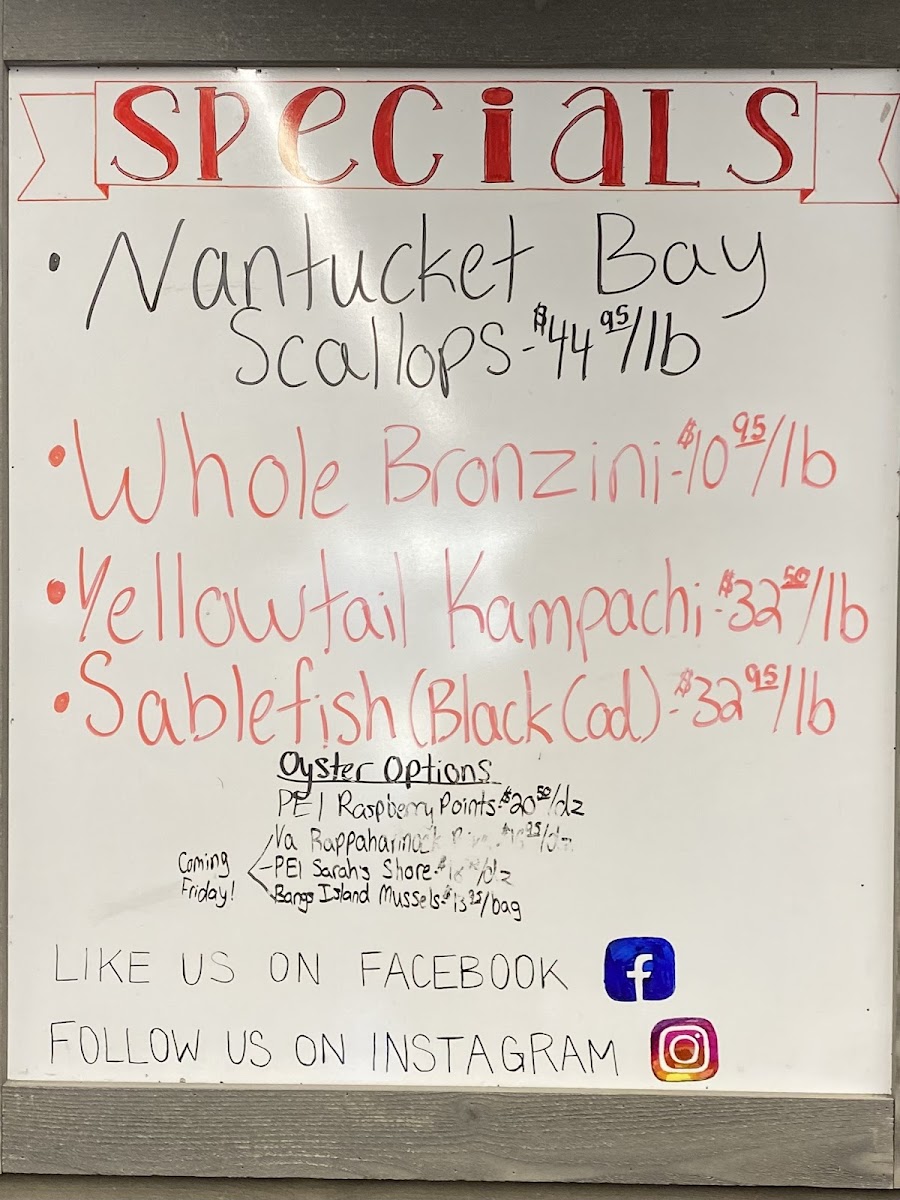 SPECiALS
• Nantucket Bay
Scallops - $44 95/lb
• Whole Bronzini - $10 95/lb
• Yellowtail Kampachi - $32 50/lb
• Sablefish (Black Cod) - $32 95/lb
Oyster Options
PEI Raspberry Points - $20 50/dz
Va Rappahannock
Coming Friday!
PEI Sarah's Shore
Bangs Island Mussels - $13 95/bag
LIKE US ON FACEBOOK f
FOLLOW US ON INSTAGRAM